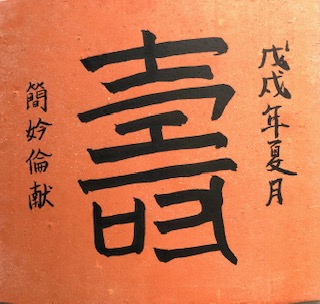 戊戌年夏月
壽
簡妗倫献